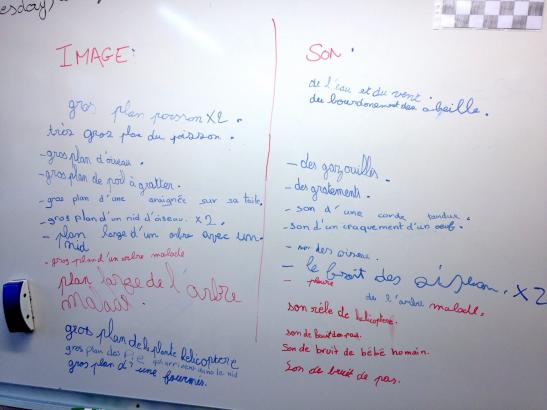 esday)
IMAGE:
gros plan poisson X2.
très gros plan du poisson.
- gros plan d'oiseau.
- gros plan de poil à gratter.
- gros plan d'une araignée sur sa toile.
- gros plan d'un nid d'oiseau. X 2.
- plan large d'un arbre avec un
nid
- gros plan d'un arbre malade
plan large de l'arbre
gros plan de la plante hélicoptère
gros plan des pie qui arrivent dans le nid
gros plan d'une fourmis.
SON:
de l'eau et du vent.
du bourdonement des abeille.
- des gazouilles.
- des gratements.
- son d'une corde tendue.
- son d'un craquement d'un oeuf.
- des oiseau.
- le bruit des X2
- pleure
de l'arbre malade.
son réele de helicoptere.
son de bruit de pas.
Son de bruit de bébé homain.
Son de bruit de pas.